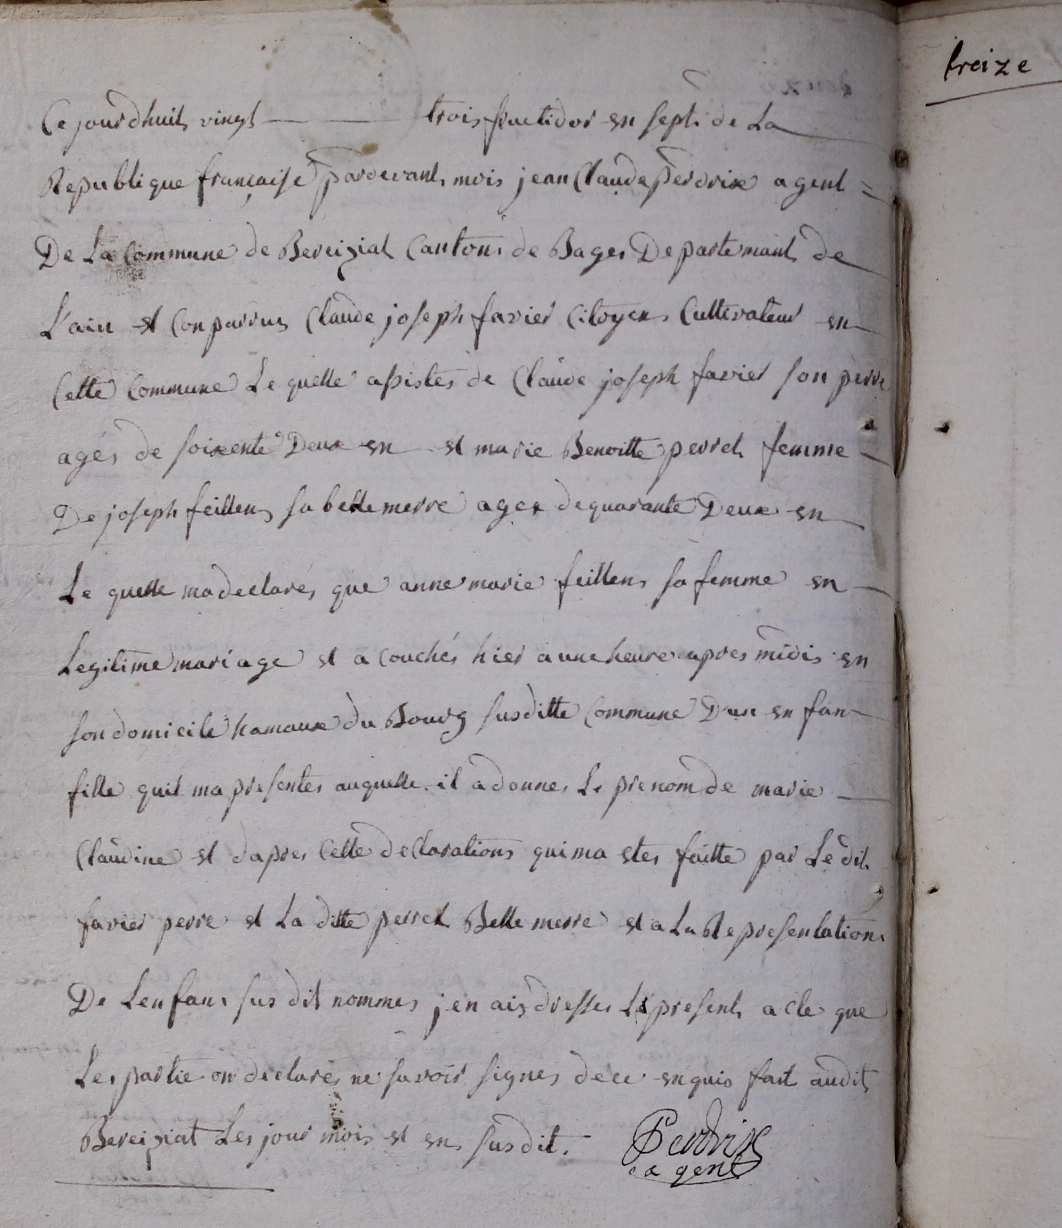 treize
Ce jourdhuit vingt trois fructidor en sept de La
Republique française pardevant mois jean Claude Perdrix agent
De La Commune de Bereiziat Cantons de Bages Departemant de
L'ain et Conparrus Claude joseph favier Citoyens Cultevateur en
Cette Commune Le quelle assistes de Claude joseph favier son perre
agés de soixente Deux en et marie Benoitte perret femme
De joseph feillens sa belle merre ages de quarante Deux en
Le quelle ma declarés que anne marie feillens sa femme en
Legitime mariage et a couchés hier a une heure apres midis en
son domicile hamaux du Bourg susditte Commune Dun en fan
fille quil ma presentes auquelle il a donnes Le prenom de marie
Claudine et dapres Cette declarations qui ma etes faitte par Le dit
favier perre et La ditte perret Belle merre et a La Representations
De Lenfans sus dit nommes jen ais dresses Le present acte que
Les partie on declarés ne savoir signes dece enquis fait audit
Bereiziat Les jour mois et en susdit. Perdrix
agent